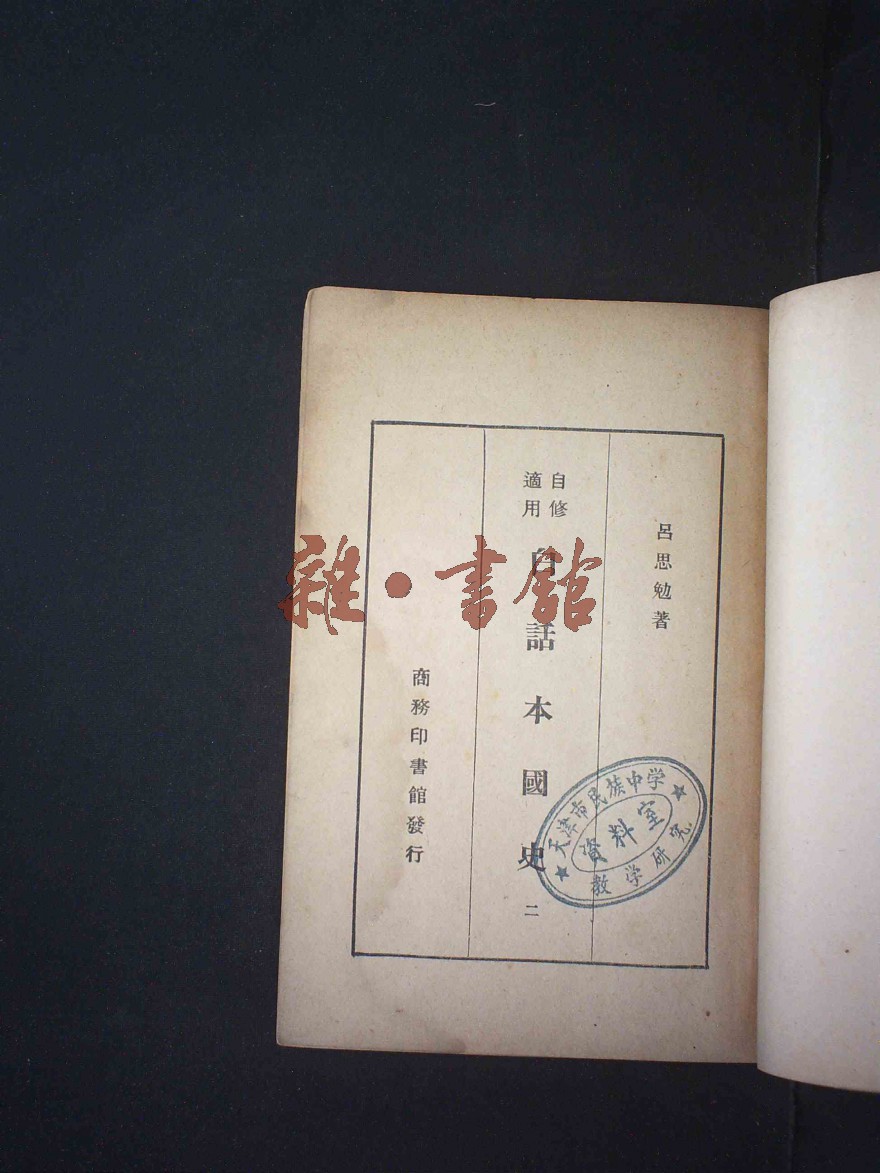 呂思勉著
自修
適用
白話本國史
二
商務印書館發行
天津市民族中学
資料室
教学研究
雜·書館